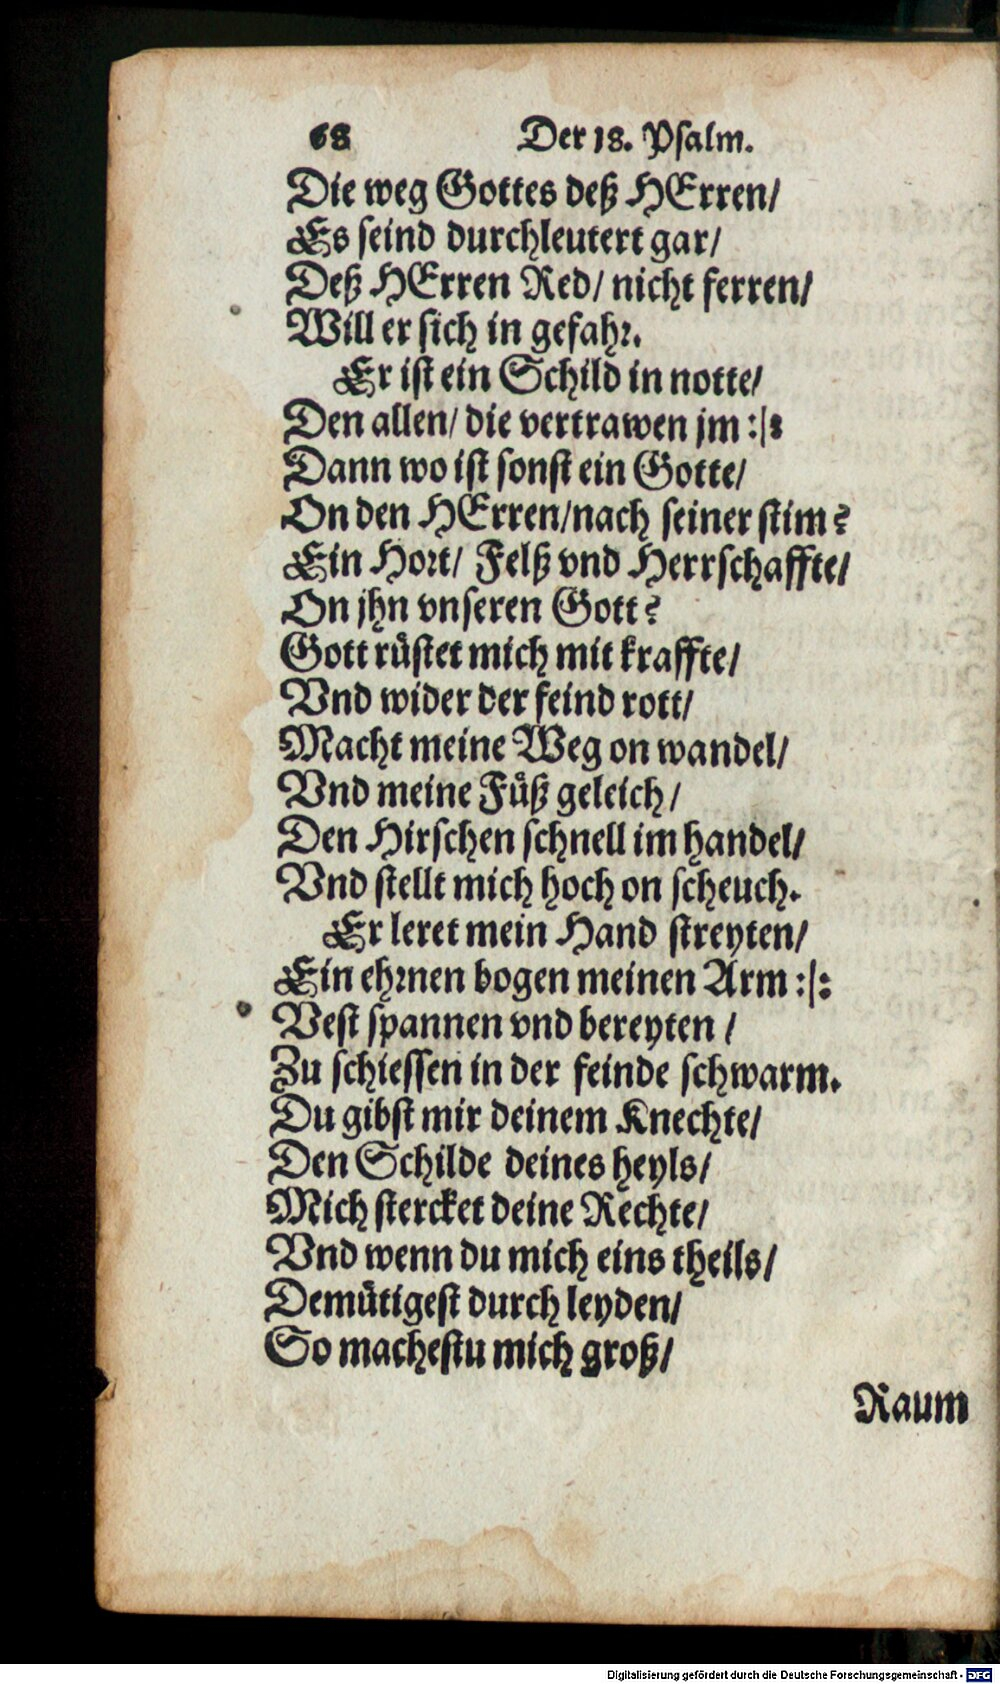 68 Der 18. Psalm.
Die weg Gottes deß HErren/
Es seind durchleutert gar/
Deß HErren Red/ nicht ferren/
Will er sich in gefahr.
Er ist ein Schild in notte/
Den allen/ die vertrawen jm :/:
Dann wo ist sonst ein Gotte/
On den HErren/nach seiner stim?
Ein Hort/ Felß vnd Herrschaffte/
On jhn vnseren Gott?
Gott rüstet mich mit kraffte/
Vnd wider der feind rott/
Macht meine Weg on wandel/
Vnd meine Füß geleich/
Den Hirschen schnell im handel/
Vnd stellt mich hoch on scheuch.
Er leret mein Hand streyten/
Ein ehrnen bogen meinen Arm :/:
Vest spannen vnd bereyten /
Zu schiessen in der feinde schwarm.
Du gibst mir deinem Knechte/
Den Schilde deines heyls/
Mich stercket deine Rechte/
Vnd wenn du mich eins theils/
Demütigest durch leyden/
So machestu mich groß/
Raum
Digitalisierung gefördert durch die Deutsche Forschungsgemeinschaft - DFG